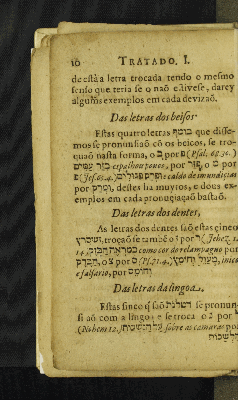 10 TRATADO. I.
de està a letra trocada tendo o mesmo
senso que teria se o naõ estivese, darey
alguñs exemplos em cada devizaõ.
Das letras dos beisos
Estas quatro letras בומף que disse-
mos se pronunsiaõ cõ os beicos, se tro-
quaõ nasta forma, o ב por פ (Psal. 68.31.)
בזר עמים espalhou povos, por פזר, o פ por
ב (Jes. 65.4.) ופרק פגולים e caldo de imundicias
por ומרק, destes ha muytos, e dous ex-
emplos em cada pronunçiaçaõ bastaõ.
Das letras dos dentes,
As letras dos dentes saõ estas çinco
זשסרץ, troçaõ se tambẽ o ז por ר (Jehez. 1.
14.) כמראה הבזק como cor do relampago por
הברק, o צ por ס (Ps. 71.4.) מעול וחומץ, inico
e falsario, por וחומס
Das letras da lingoa.
Estas sinco sj saõ דטלנת se pronun-
si aõ com a lingoa e se troca o ל por נ
(Nehem 12.) על הנשכות sobre as camaras por
הלשכות